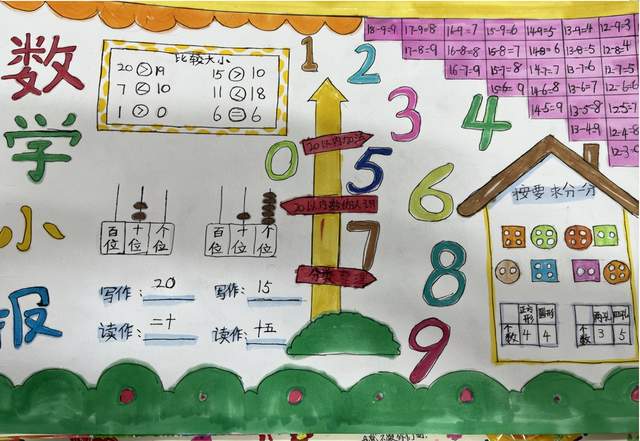 数
学
小
报
比较大小
20>19 15>10
7<10 11<18
1>0 6=6
百位 十位 个位
百位 十位 个位
写作：20
写作：15
读作：二十
读作：十五
0
1
2
3
4
5
6
7
8
9
20以内数的认识
18-9=9 17-9=8 16-9=7 15-9=6 14-9=5 13-9=4 12-9=3
17-8=9 16-8=8 15-8=7 14-8=6 13-8=5 12-8=4
16-7=9 15-7=8 14-7=7 13-7=6 12-7=5
15-6=9 14-6=8 13-6=7 12-6=6
14-5=9 13-5=8 12-5=7
13-4=9 12-4=8
按要求分一分
正方形 圆形
个数 4 4
两孔 四孔
个数 3 5